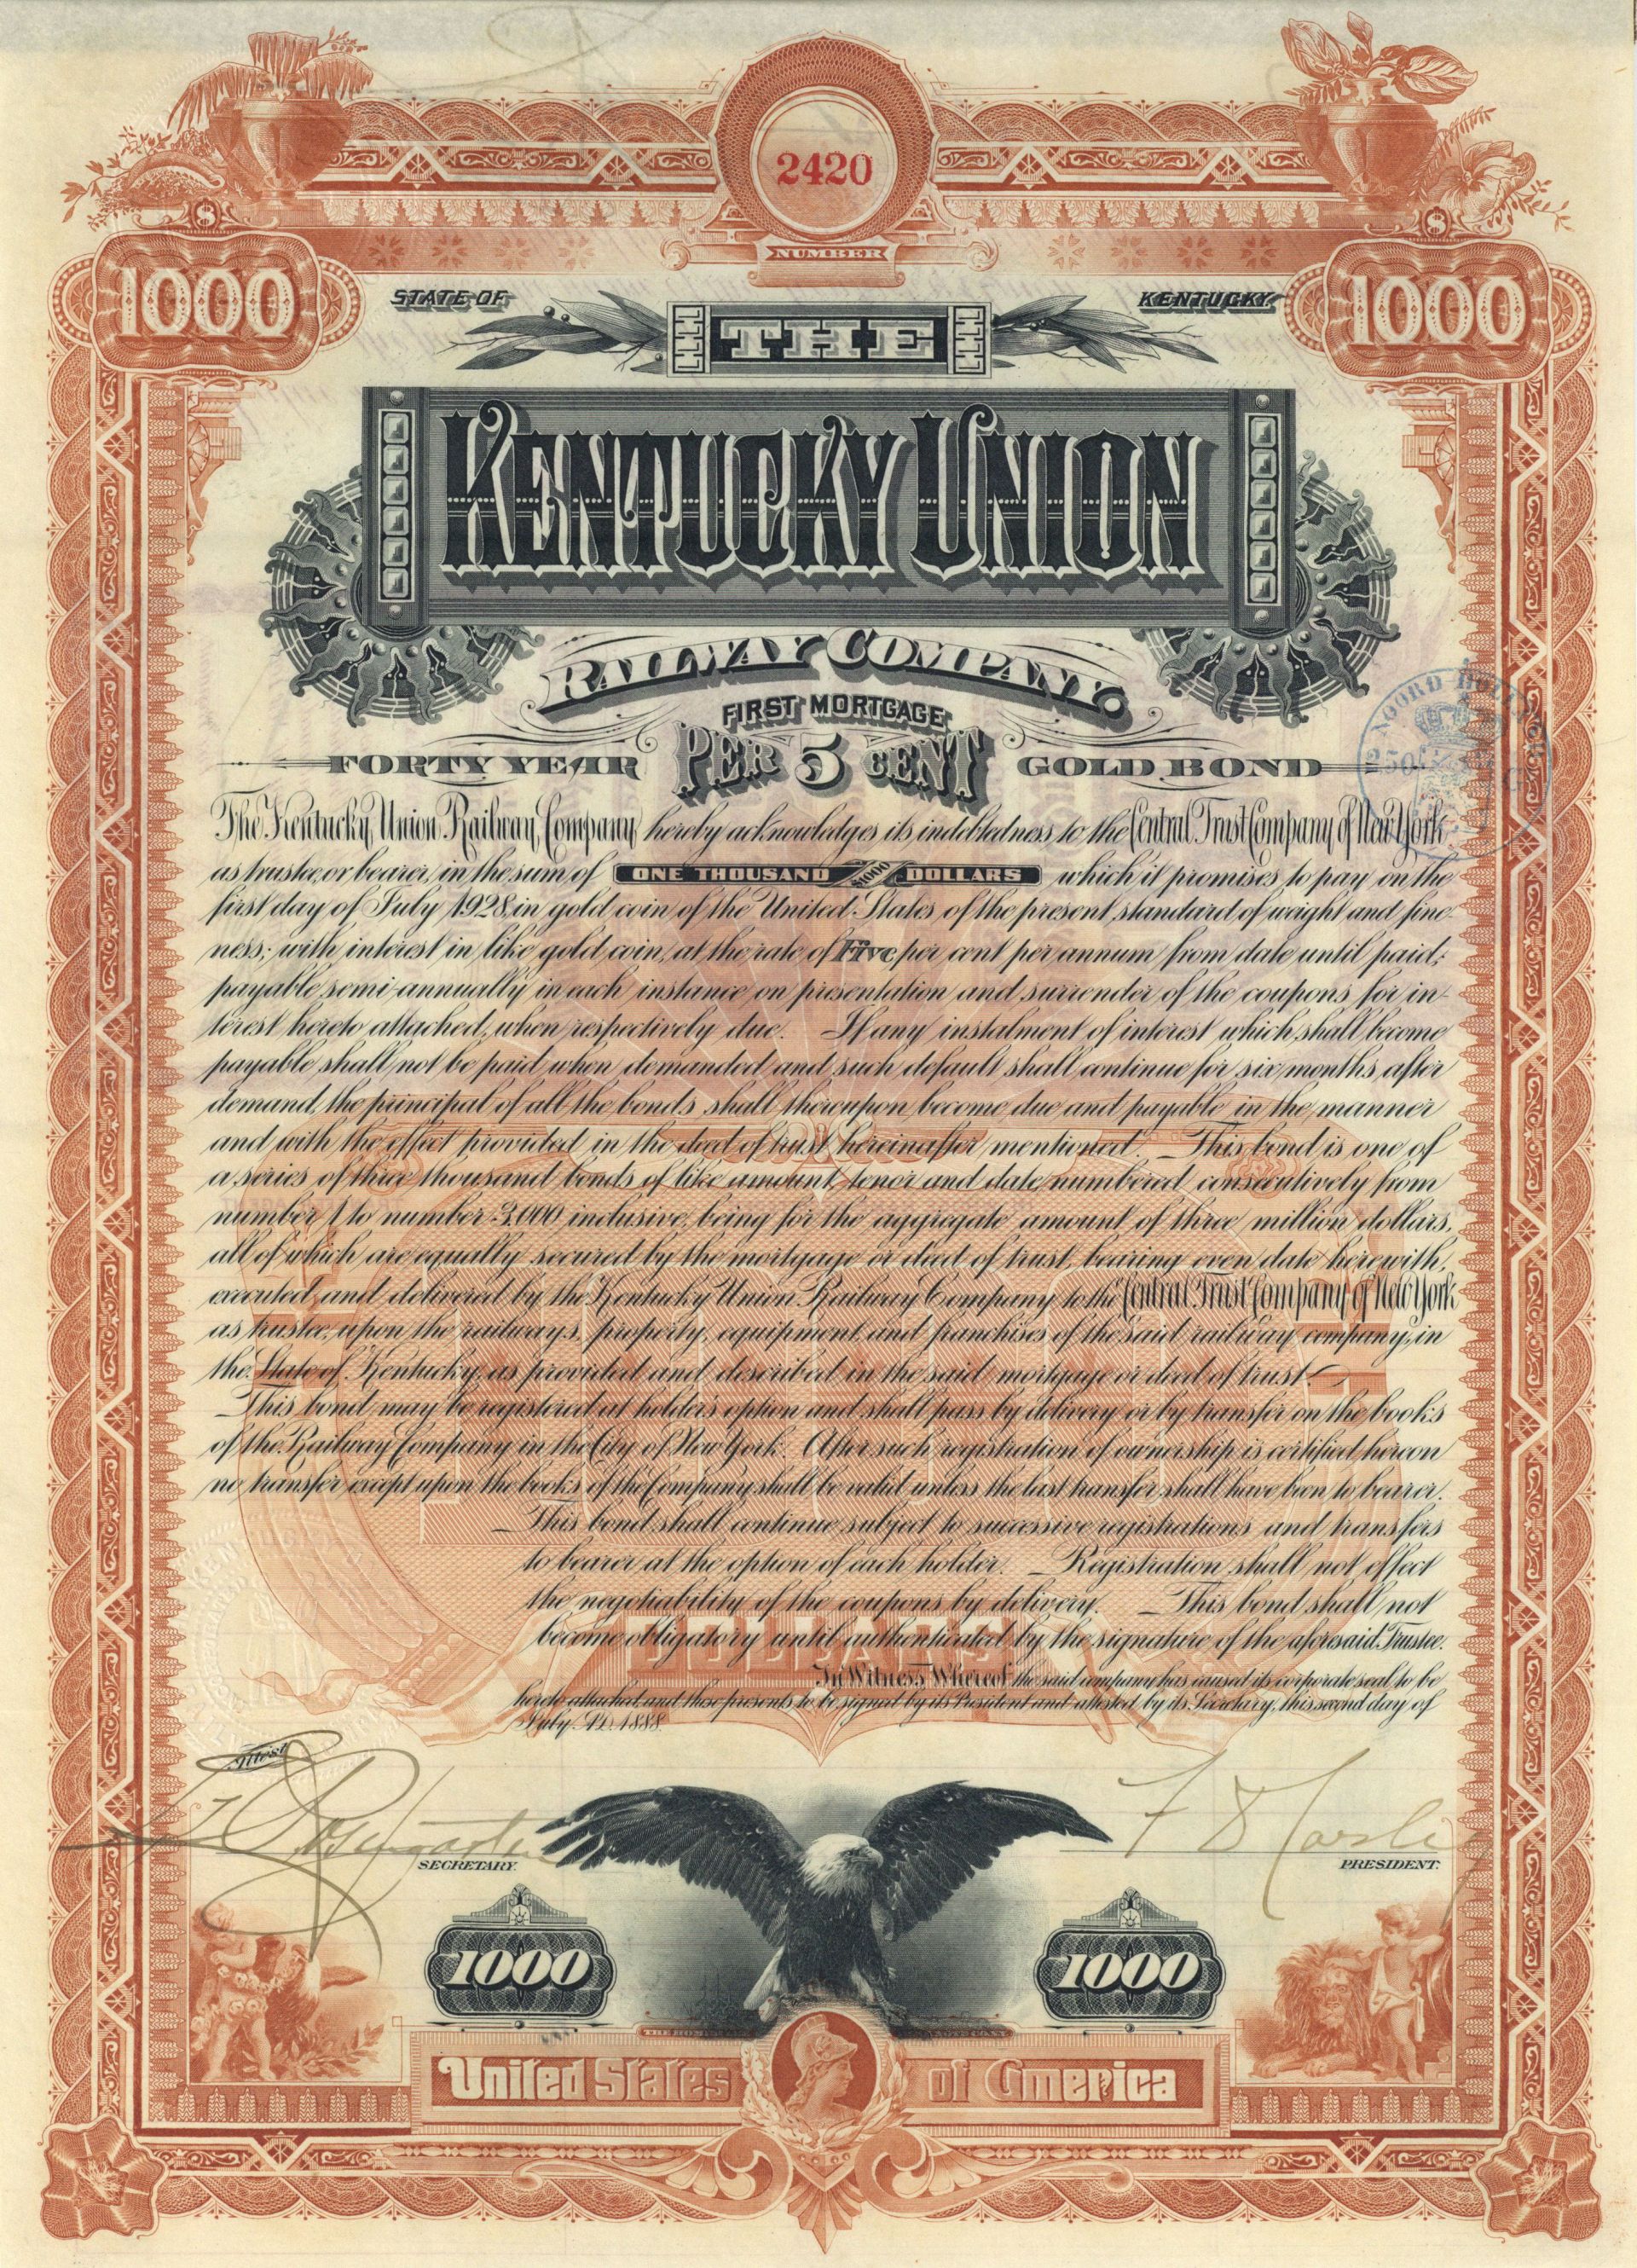 2420
NUMBER
1000
1000
STATE OF
KENTUCKY.
THE
KENTUCKY UNION
RAILWAY COMPANY.
FIRST MORTGAGE
FORTY YEAR PER 5 CENT GOLD BOND
NOORD HOLLAND
The Kentucky Union Railway Company hereby acknowledges its indebtedness to the Central Trust Company of New York
as trustee, or bearer, in the sum of ONE THOUSAND $1000 DOLLARS which it promises to pay on the
first day of July 1928, in gold coin of the United States of the present standard of weight and fine-
ness; with interest in like gold coin, at the rate of Five per cent per annum from date until paid;
payable semi-annually in each instance on presentation and surrender of the coupons for in-
terest hereto attached, when respectively due. If any instalment of interest which shall become
payable shall not be paid when demanded and such default shall continue for six months after
demand, the principal of all the bonds shall thereupon become due and payable in the manner
and with the effect provided in the deed of trust hereinafter mentioned. This bond is one of
a series of three thousand bonds of like amount, tenor and date, numbered consecutively from
number 1 to number 3,000 inclusive, being for the aggregate amount of three million dollars,
all of which are equally secured by the mortgage or deed of trust, bearing even date herewith,
executed and delivered by the Kentucky Union Railway Company to the Central Trust Company of New York
as trustee, upon the railways, property, equipment, and franchises of the said railway company, in
the State of Kentucky, as provided and described in the said mortgage or deed of trust
This bond may be registered at holder's option and shall pass by delivery or by transfer on the books
of the Railway Company in the City of New York. After such registration of ownership is certified hereon
no transfer except upon the books of the Company shall be valid unless the last transfer shall have been to bearer.
This bond shall continue subject to successive registrations and transfers
to bearer at the option of each holder. Registration shall not effect
the negotiability of the coupons by delivery. This bond shall not
become obligatory until authenticated by the signature of the aforesaid Trustee.
DOLLARS
In Witness Whereof the said company has caused its corporate seal to be
hereto attached and these presents to be signed by its President and attested by its Secretary, this second day of
July A.D. 1888.
Attest
SECRETARY.
PRESIDENT.
1000
1000
United States of America